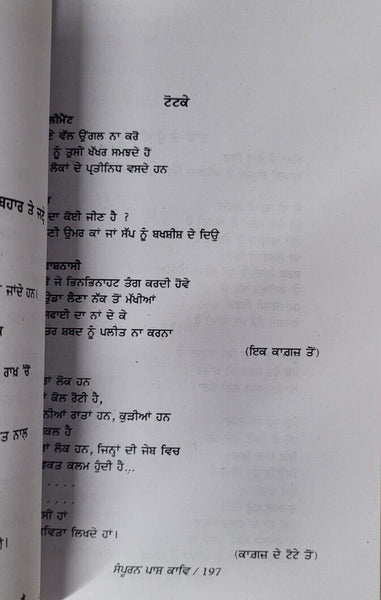 ਟੋਟਕੇ
ਲੀਮੈਂਟ
ਣੇ ਵੱਲ ਉਂਗਲ ਨਾ ਕਰੋ
ਨੂੰ ਤੁਸੀਂ ਖੱਖਰ ਸਮਝਦੇ ਹੋ
ਲੋਕਾਂ ਦੇ ਪ੍ਰਤੀਨਿਧ ਵਸਦੇ ਹਨ
ਬਹਾਰ ਤੇ ਜਦੋਂ
ਦਾ ਕੋਈ ਜੀਣ ਹੈ ?
ਣੀ ਉਮਰ ਕਾਂ ਜਾਂ ਸੱਪ ਨੂੰ ਬਖਸ਼ੀਸ਼ ਦੇ ਦਿਉ
ਬਨਾਸੀ
ਜੇ ਭਿਨਭਿਨਾਹਟ ਤੰਗ ਕਰਦੀ ਹੋਵੇ
ਜਾਂਦੇ ਹਨ।
ਉਡਾ ਲੈਣਾ ਨੱਕ ਤੋਂ ਮੱਖੀਆਂ
ਸਫਾਈ ਦਾ ਨਾਂ ਦੇ ਕੇ
ਤਰ ਸ਼ਬਦ ਨੂੰ ਪਲੀਤ ਨਾ ਕਰਨਾ
(ਇਕ ਕਾਗਜ਼ ਤੋਂ)
ਰਾਖ 'ਚੋਂ
ਲੋਕ ਹਨ
ਕੋਲ ਰੋਟੀ ਹੈ,
ਨੀਆਂ ਰਾਤਾਂ ਹਨ, ਕੁੜੀਆਂ ਹਨ
ਤ ਨਾਲ
ਕਲ ਹੈ
ਲੋਕ ਹਨ, ਜਿਨ੍ਹਾਂ ਦੀ ਜੇਬ ਵਿਚ
ਕਤ ਕਲਮ ਹੁੰਦੀ ਹੈ...
. . . .
. . . .
ਸੀਂ ਹਾਂ
ਵਿਤਾ ਲਿਖਦੇ ਹਾਂ।
(ਕਾਗਜ਼ ਦੇ ਟੋਟੇ ਤੋਂ)
ਸੰਪੂਰਨ ਪਾਸ਼ ਕਾਵਿ / 197